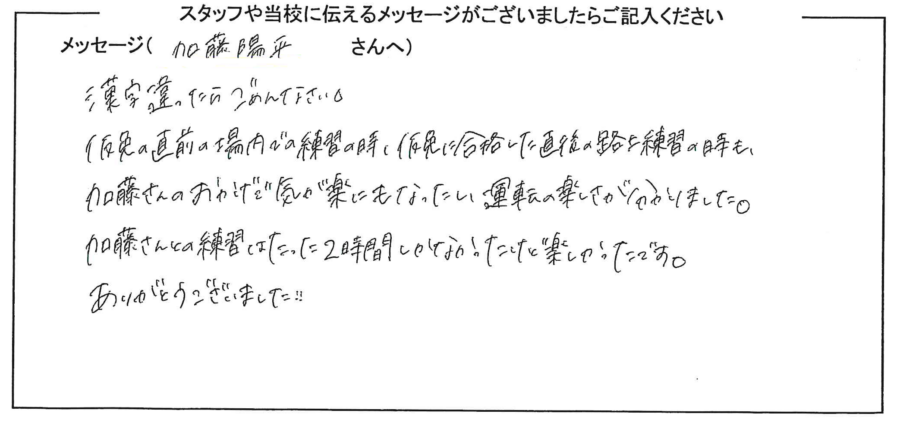 スタッフや当校に伝えるメッセージがございましたらご記入ください
メッセージ( 加藤陽平 さんへ)
漢字違ったらごめんなさい。
仮免の直前の場内での練習の時、仮免に合格した直後の路上練習の時も、
加藤さんのおかげで気が楽にもなったし、運転の楽しさが分かりました。
加藤さんとの練習はたった2時間しかなかったけど楽しかったです。
ありがとうございました!!